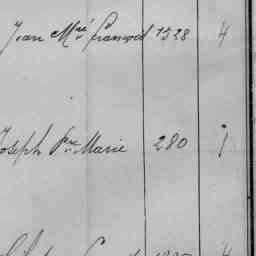 Jean Mie François 1328 4
Joseph Pre Marie 280 1